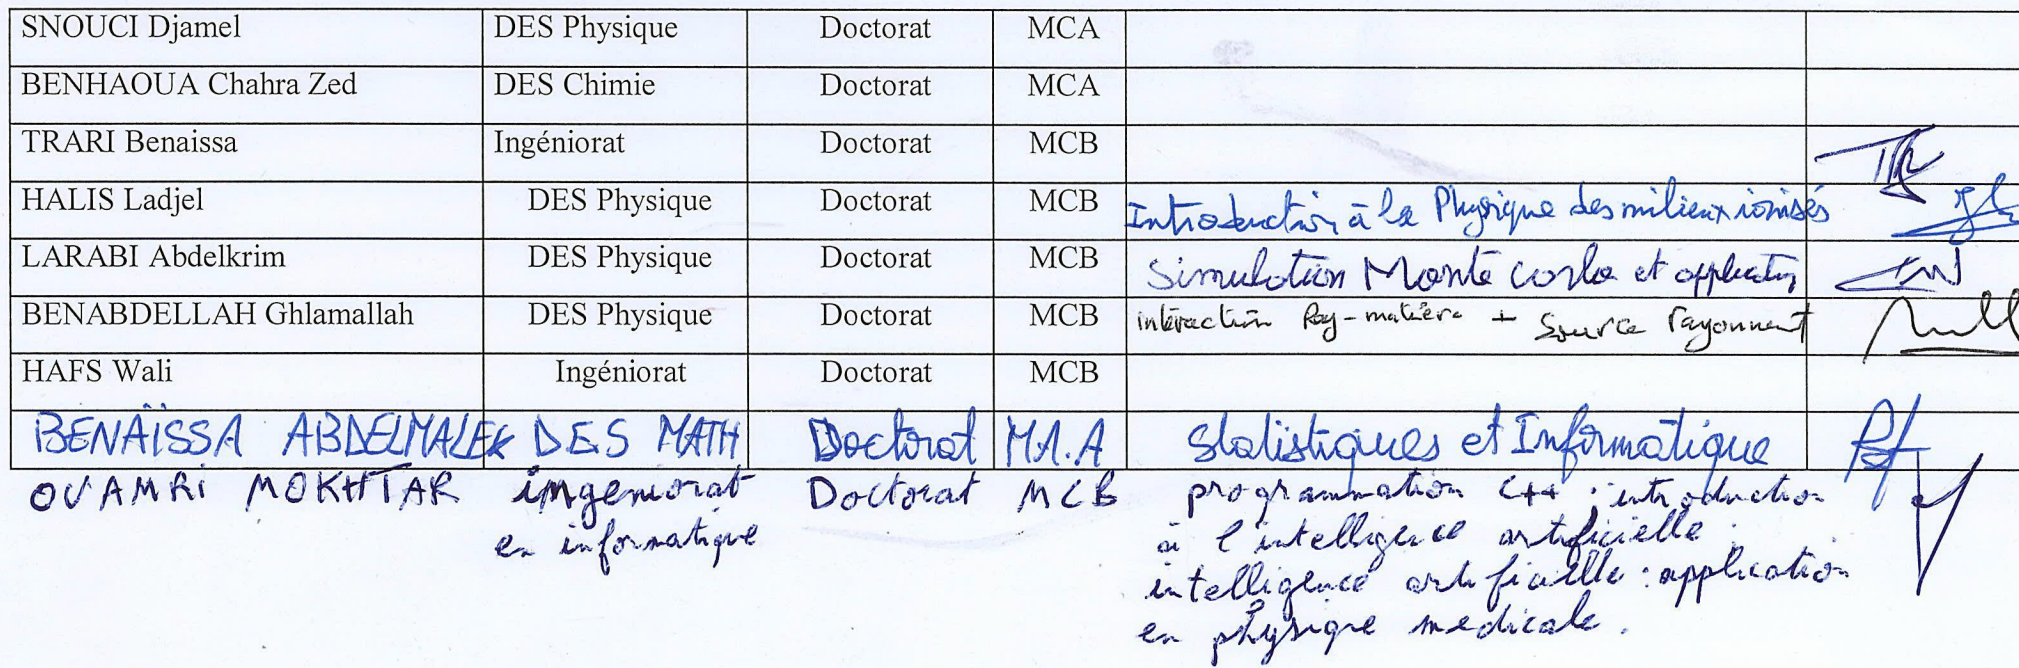 SNOUCI Djamel DES Physique Doctorat MCA
BENHAOUA Chahra Zed DES Chimie Doctorat MCA
TRARI Benaissa Ingéniorat Doctorat MCB
HALIS Ladjel DES Physique Doctorat MCB Introduction à la Physique des milieux ionisés
LARABI Abdelkrim DES Physique Doctorat MCB Simulation Monte Carlo et application
BENABDELLAH Ghlamallah DES Physique Doctorat MCB intéraction Ray-matière + Source rayonnent
HAFS Wali Ingéniorat Doctorat MCB
BENAÏSSA ABDELMALEK DES MATH Doctorat M.A Statistiques et Informatique
OUAMRI MOKHTAR imgeniorat Doctorat MCB programmation C++ ; introduction
en informatique à l'intelligence artificielle.
intelligence artificielle : application
en physique medicale.